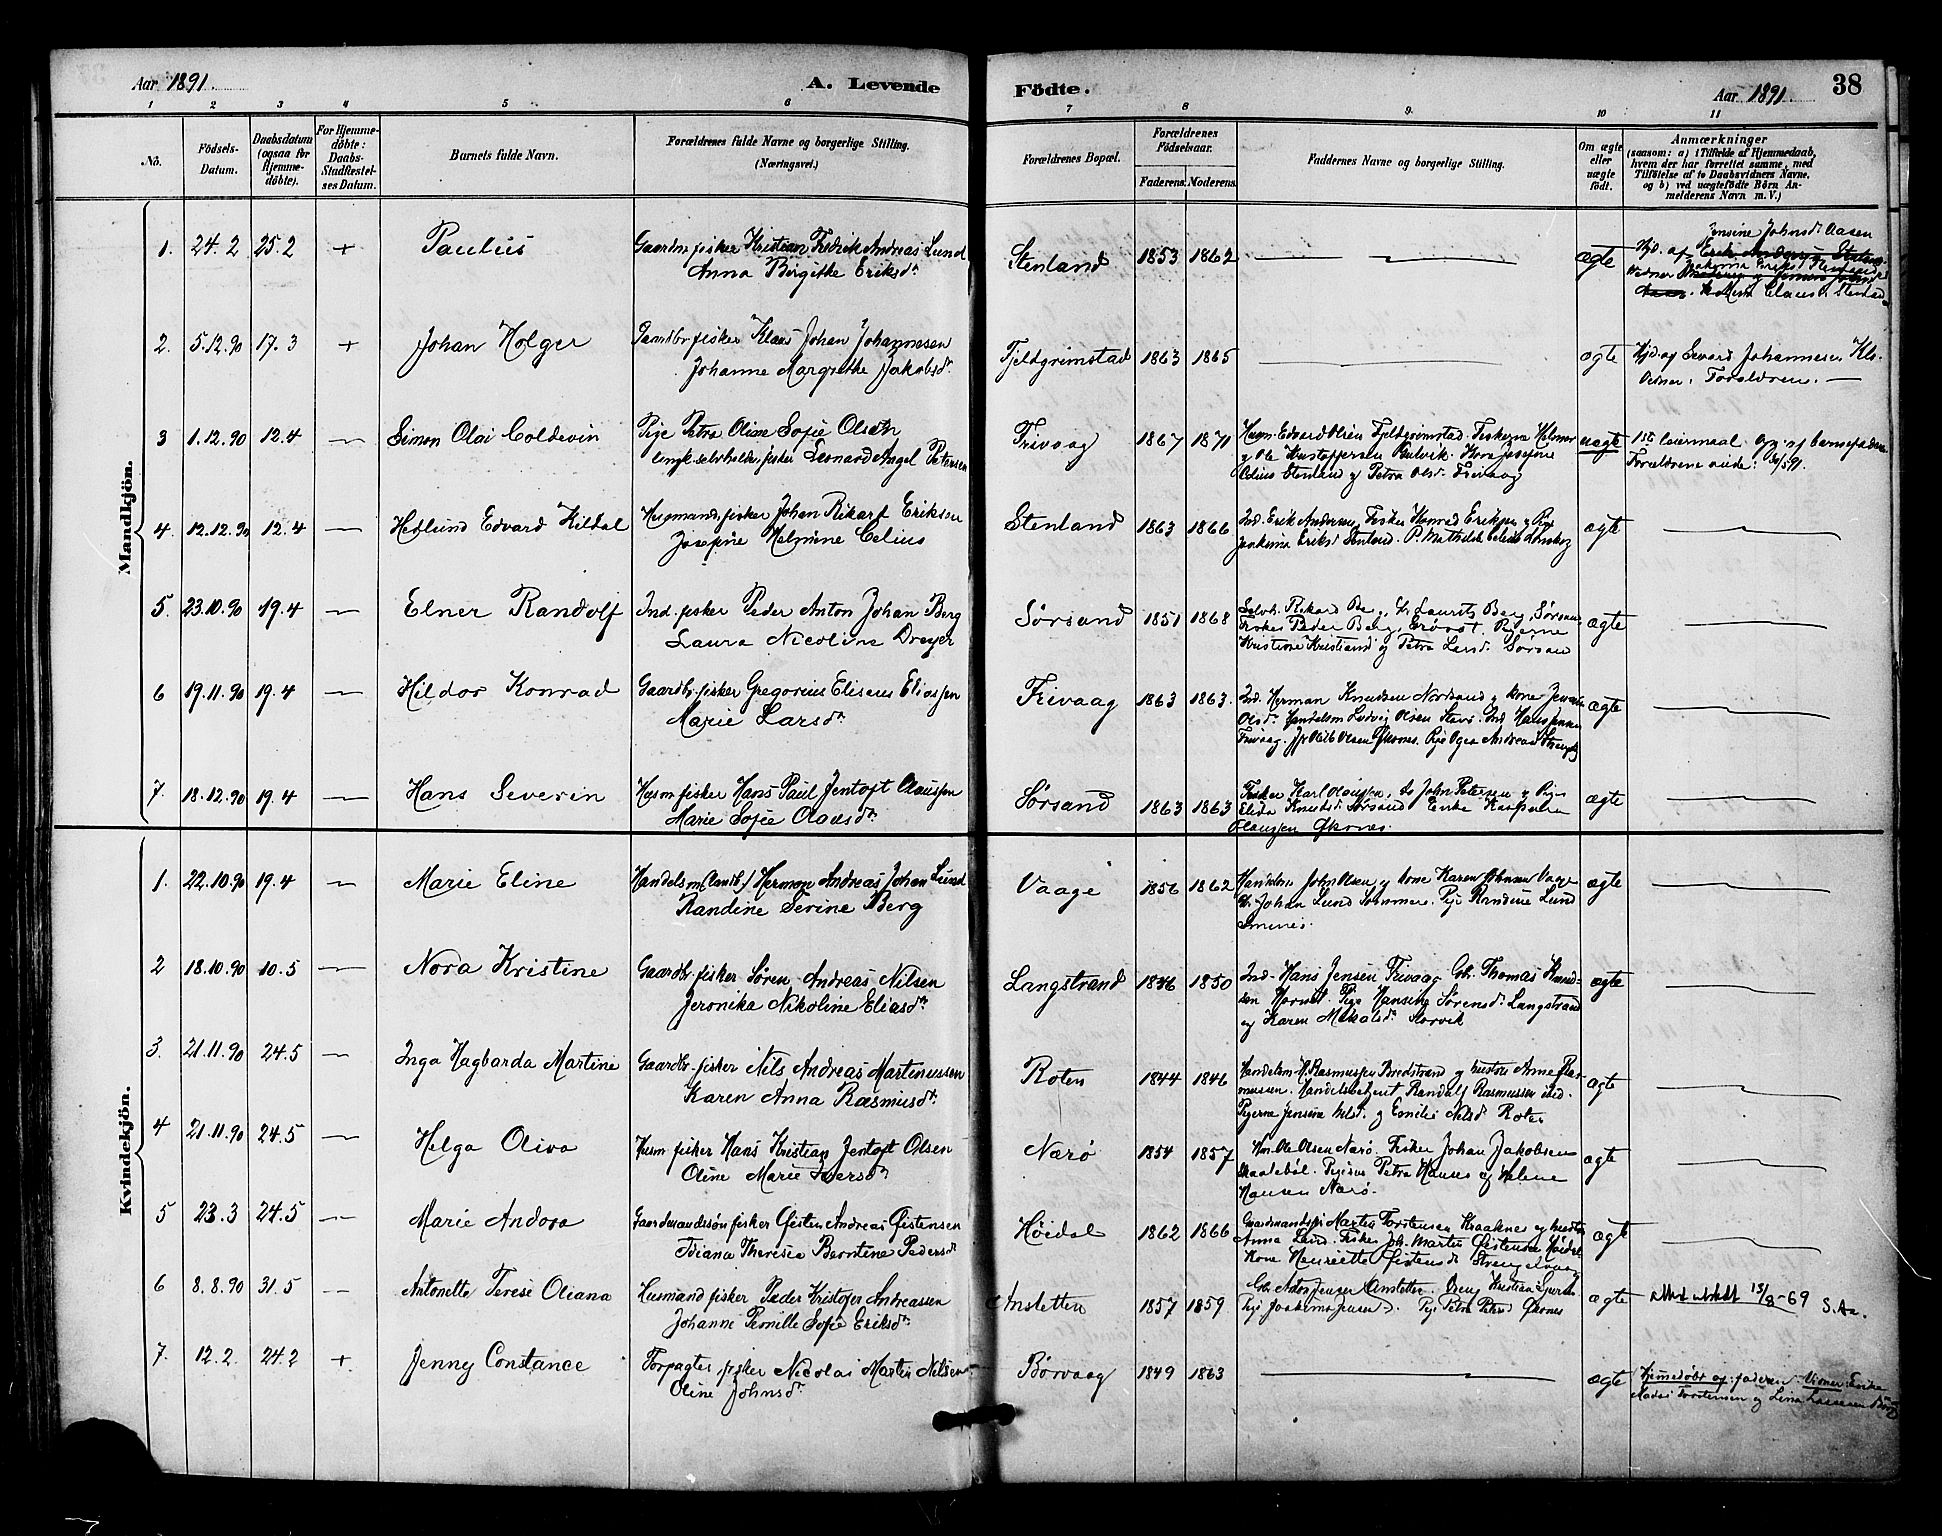 Aar 1891. A. Levende Födte. Aar 1891. 38
1 2 3 4 5 6 7 8 9 10 11
No. Födsels-Datum. Daabsdatum (ogsaa for Hjemme-döbte). For Hjemme-döbte: Daabs-Stadfæstel-ses Datum. Barnets fulde Navn. Forældrenes fulde Navne og borgerlige Stilling. (Næringsvei.) Forældrenes Bopæl. Forældrenes Födselsaar. Faderens. Moderens. Faddernes Navne og borgerlige Stilling. Om ægte eller uægte födt. Anmærkninger (saasom: a) i Tilfælde af Hjemmedaab, hvem der har forrettet samme, med Tilföielse af to Daabsvidners Navne, og b) ved uægtefödte Börn An-melderens Navn m. V.)
Mandkjön.
1. 24.2 25.2 + Paulus Gaardm. fisker Kristian Fredrik Andreas Lund
Anna Birgitte Eriksd. Stenland 1853 1862 ægte Jensine Johnsd. Aasen
Hjd. af
2. 5.12.90 17.3 + Johan Holger Gaardbr fisker Klaus Johan Johannesen
Johanne Margrethe Jakobsd. Fjeldgrimstad 1863 1865 ægte Hjd. af Sevard Johannesen Klo.
Vidner. Forældrene.
3 1.12.90 12.4 Simon Olai Coldevin Pige Petra Oline Sofie Olsdtn
Ungk. selvholder, fisker Leonard Angel Petersen Frivaag 1867 1871 Husm. Edvard Olsen Fjeldgrimstad. Fiskerne Helmer
og Ole Kristoffersen Gulvik. Kone Josefine
Celius Stenland og Petra Olsd. Frivaag uægte 1ste leiermaal. Opg. af barnefaderen
4. 12.12.90 12.4 Hedlund Edvard Kildal Husmand, fisker Johan Rikart Eriksen
Josefine Helmine Celius Stenland 1863 1866 Ind. Erik Andersen, Fisker Konrad Eriksen og Pige
Joakima Eriksd. Stenland. P. Mathilde Celius ægte
5. 23.10.90 19.4 Elner Randolf Ind. fisker Peder Anton Johan Berg
Laura Nicoline Dreyer Sørsand 1851 1868 Selvh. Rikard Berg, Laurits Berg, Sørsan
Fisker Peder Berg, Pigerne
Kristine Kristiansd. og Petra Larsd. Sørsan ægte
6 19.11.90 19.4 Hildor Konrad Gaardbr. fisker Gregorius Eliseus Eliassen
Marie Larsd. Frivaag 1863 1863. Ind. Herman Knudsen Nordsand og kone
Olsd. Handelsm Ludvig Olsen Steve. Ind. Hans Jensen
Frivaag. Olsen Øksnes. Pige Olga Andrea ægte
7. 18.12.90 19.4 Hans Severin Husm fisker Hans Paul Jentoft Claussen
Marie Sofie Olausd. Sørsand 1863 1863 Fisker Karl Olaussen, do John Petersen og Pige
Elida Knutsd. Sørsand Enke
Claussen Øksnes. ægte
Kvindekjön.
1. 22.10.90 19.4 Marie Eline Handelsm (landh.) Herman Andreas Johan Lund
Randine Serine Berg Vaage 1856 1862 Handelsm John Olsen og kone Karen Johnsen Vaage
Johan Lund Sommerø. Pige Randine Lund
Smines. ægte
2 18.10.90 10.5 Nora Kristine Gaardbr. fisker Søren Andreas Nilsen
Jeronika Nikoline Eliasd. Langstrand 1846 1850 Ind. Hans Jensen Frivaag Gb. Thomas Knud-
sen Pige Hansine Sørensd. Langstrand
og Karen Mikalsd. Storvik ægte
3. 21.11.90 24.5 Inga Hagbarda Martine Gaardbr. fisker Nils Andreas Martinussen
Karen Anna Rasmusd. Roten 1844 1846 Handelsm. H. Rasmussen Bredstrand og hustru Anne Ras-
mussen. Handelsbetjent Randulf Rasmussen ibid.
Pigerne Jensine Nilsd. og Emilie Nilsd. Roten ægte
4 21.11.90 24.5 Helga Oliva Husm fisker Hans Kristian Jentoft Olsen
Oline Marie Iversd. Nærø 1854 1857 Hm. Ole Olsen Nærø. Fisker Johan Jakobsen
Skaaebøl. Pigerne Petra Hansen og Helene
Hansen Nærø. ægte
5 23.3 24.5 Marie Andora Gaardmandssøn fisker Østen Andreas Østensen
Idiana Theresia Berntine Pedersd. Høidal 1862 1866 Gaardmandsf. Martin Torstensen Kraaknes og hustru
Anna Lund. Fisker Joh. Martin Østensen Høidal
Kone Henriette Østensd. Strengelvaag ægte
6 8.8.90 31.5 Antonette Terese Oliana Husmand fisker Peder Kristofer Andreassen
Johanne Pernille Sofie Eriksd. Anstetten 1857 1859 Gbr. Jensen Anstetten. Kristian
Pige Joakima Jensen. Pige Petra Petersd. Øksnes ægte attest utstedt 13/8-69 S.Aa.
7. 12.2. 24.2 + Jenny Constance Forpagter fisker Nicolai Martin Nilsen
Oline Johnsd. Børvaag 1849 1863 ægte Hjemmedøbt af faderen. Vidner: Enke
Torstensen og Lina